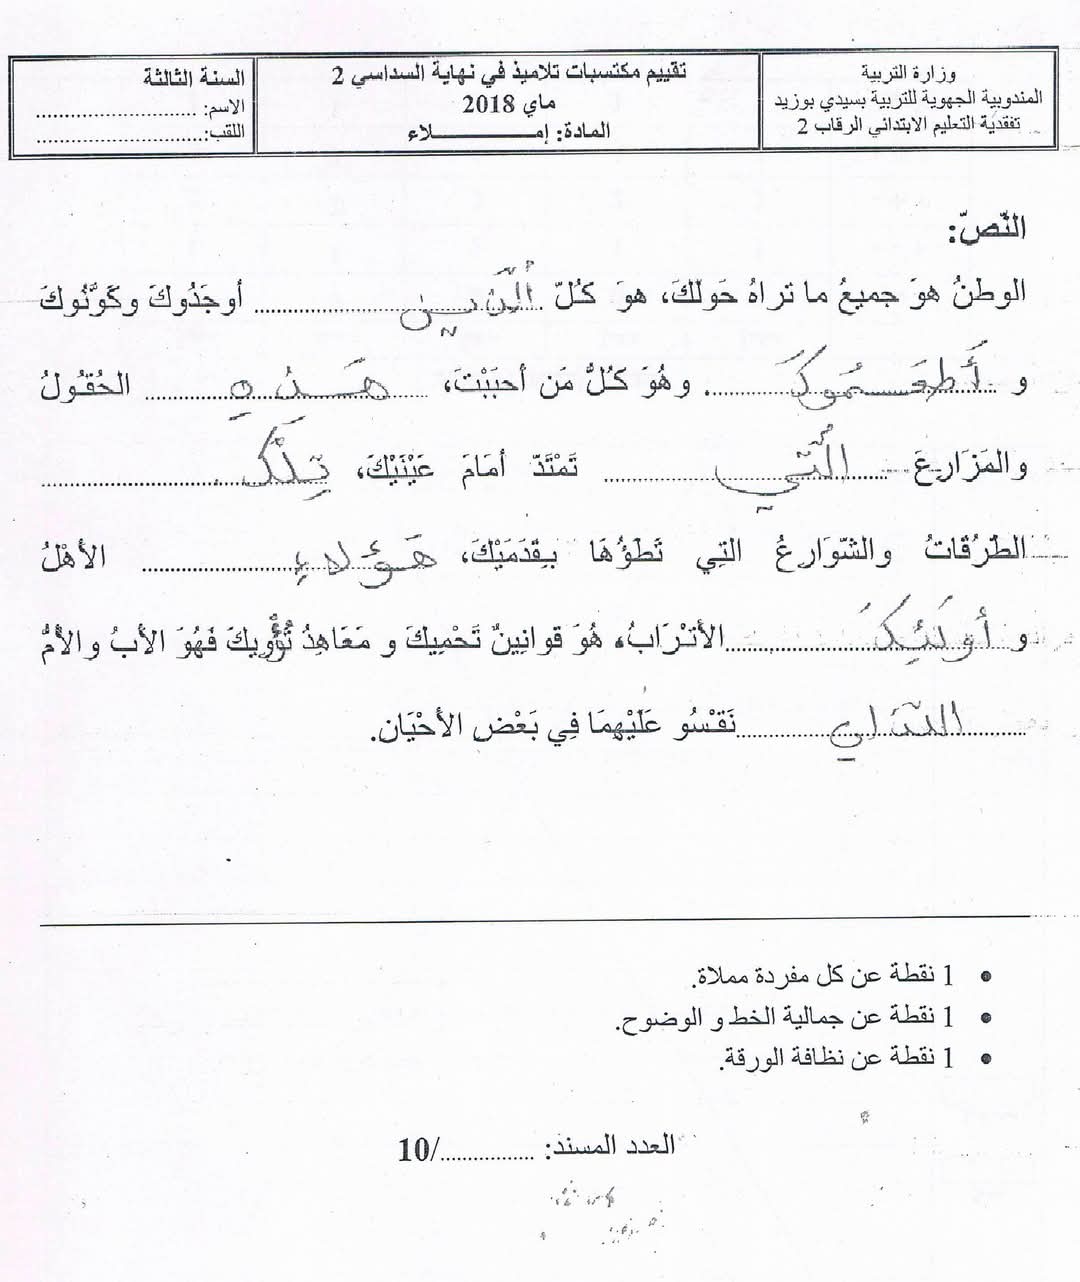 وزارة التربية
المندوبية الجهوية للتربية بسيدي بوزيد
تفقدية التعليم الابتدائي الرقاب 2
تقييم مكتسبات تلاميذ في نهاية السداسي 2
ماي 2018
المادة: إمـــــــــلاء
السنة الثالثة
الاسم: ........................
اللقب:.........................
النّصّ:
الوطنُ هوَ جميعُ ما تراهُ حَولَكَ، هوَ كُلّ ...الّذين............ أوجَدُوكَ وكَوَّنُوكَ
و ...أَطعَمُوكَ............ وهُوَ كُلُّ مَن أحبَبْتَ، ......هَذِهِ......... الحُقُولُ
والمَزَارِعَ ......الّتي......... تَمْتَدّ أمَامَ عَيْنَيْكَ، تِلْكَ...............
الطّرُقَاتُ والشّوَارِعُ التِي تَطَؤُهَا بِقَدَمَيْكَ، هَؤلاءِ............... الأهْلُ
و أُولَئِكَ...............الأتْرَابُ، هُوَ قوانِينٌ تَحْمِيكَ و مَعَاهِدُ تُؤْوِيكَ فَهُوَ الأبُ والأمُّ
............................نَقْسُو عَلَيْهِمَا فِي بَعْضِ الأحْيَان.
1 نقطة عن كل مفردة مملاة.
1 نقطة عن جمالية الخط و الوضوح.
1 نقطة عن نظافة الورقة.
العدد المسند: ................/10